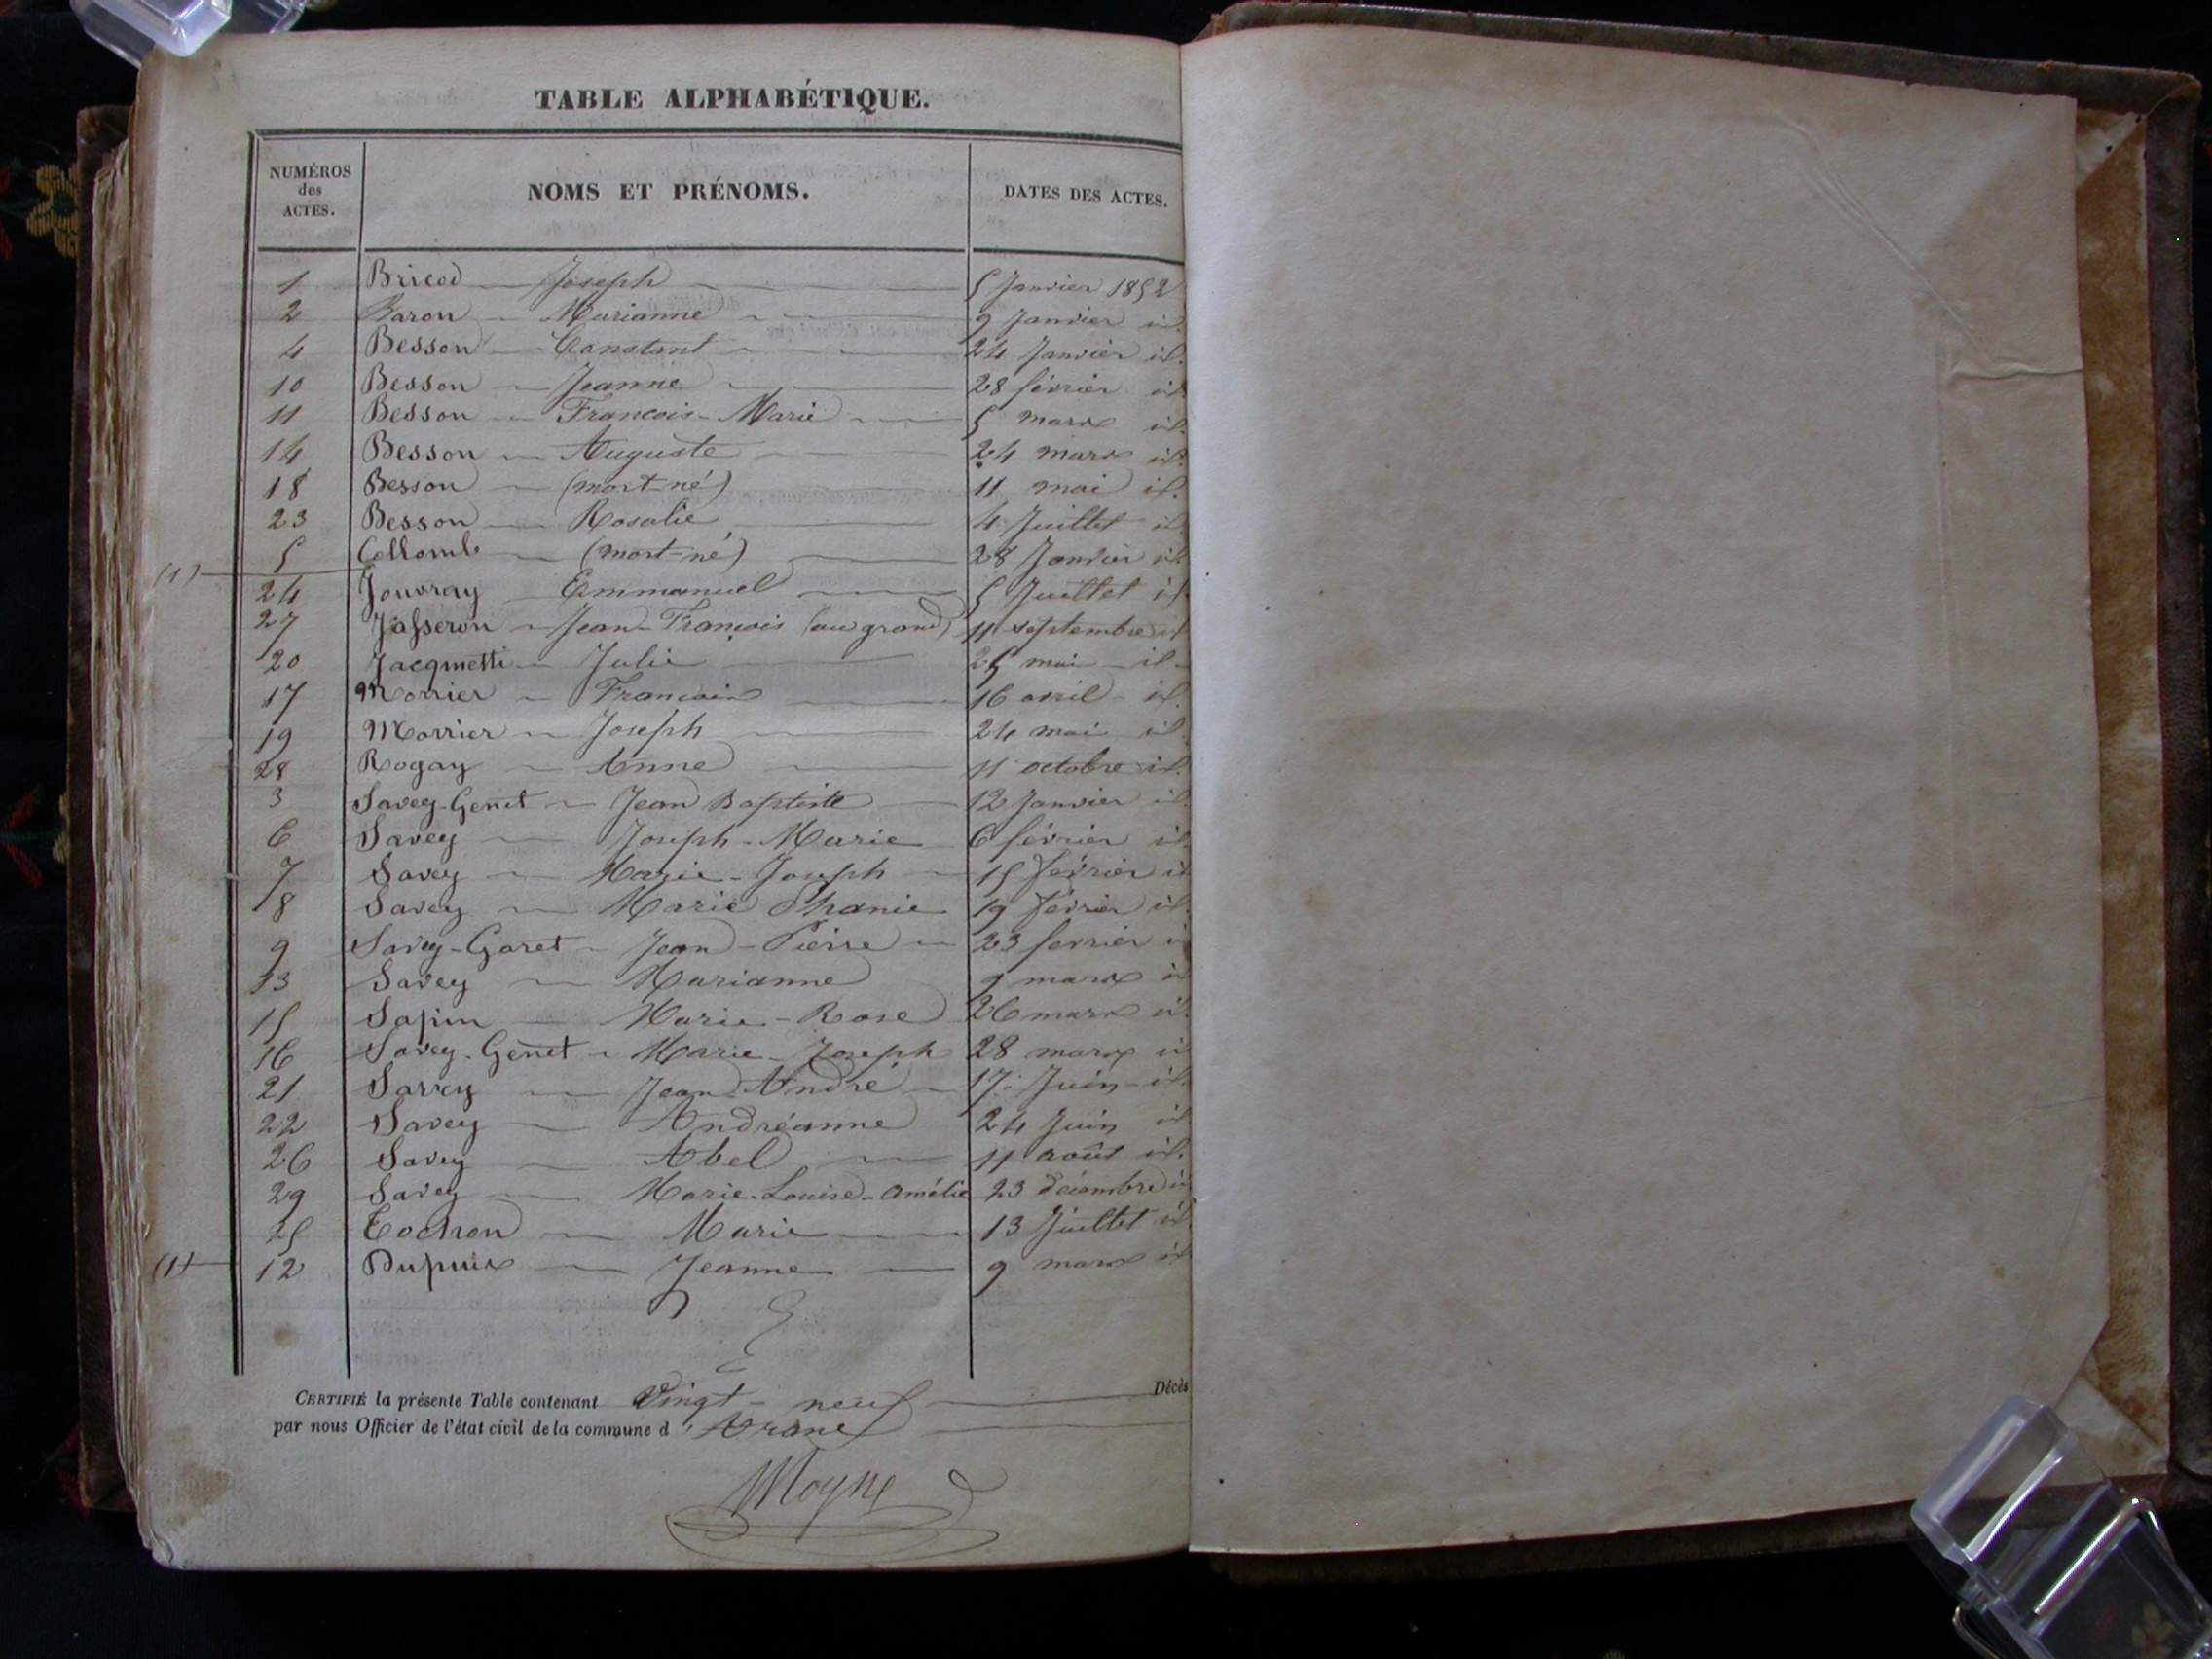 TABLE ALPHABÉTIQUE.
NUMÉROS des ACTES. NOMS ET PRÉNOMS. DATES DES ACTES.
1 Bricod Joseph 5 Janvier 1852
2 Baron Marianne 9 Janvier id.
4 Besson Constant 24 Janvier id.
10 Besson Jeanne 28 février id
11 Besson Francois-Marie 5 mars id.
14 Besson Auguste 24 mars id.
18 Besson (mort-né) 11 mai id.
23 Besson Rosalie 4 Juillet id
5 Collomb (mort-né) 28 Janvier id
(1)
24 Jouvray Emmanuel 5 Juillet id.
27 Jasseron Jean-François (au grand) 11 septembre id
20 Jacquetti Julie 25 mai id
17 Morrier Francois 16 avril id.
19 Morrier Joseph 24 mai id
28 Rogay Anne 11 octobre id.
3 Savey-Genet Jean Baptiste 12 Janvier id
6 Savey Joseph-Marie 6 février id
7 Savey Marie-Joseph 15 février id
8 Savey Marie 19 février id
9 Savey-Goret Jean-Pierre 23 fevrier
13 Savey Marianne 9 mars
15 Sapin Marie-Rose 26 mars id.
16 Savey-Genet Marie-Joseph 28 mars
21 Savey Jean André 17 Juin id.
22 Savey Andréanne 24 Juin id
26 Savey Abel 11 août id.
29 Savey Marie-Louise-Amélie 23 décembre
25 Cochon Marie 13 Juillet id.
(1) 12 Dupuis Jeanne 9 mars id
CERTIFIÉ la présente Table contenant Vingt-neuf Décès
par nous Officier de l'état civil de la commune d'Arane
Moyne